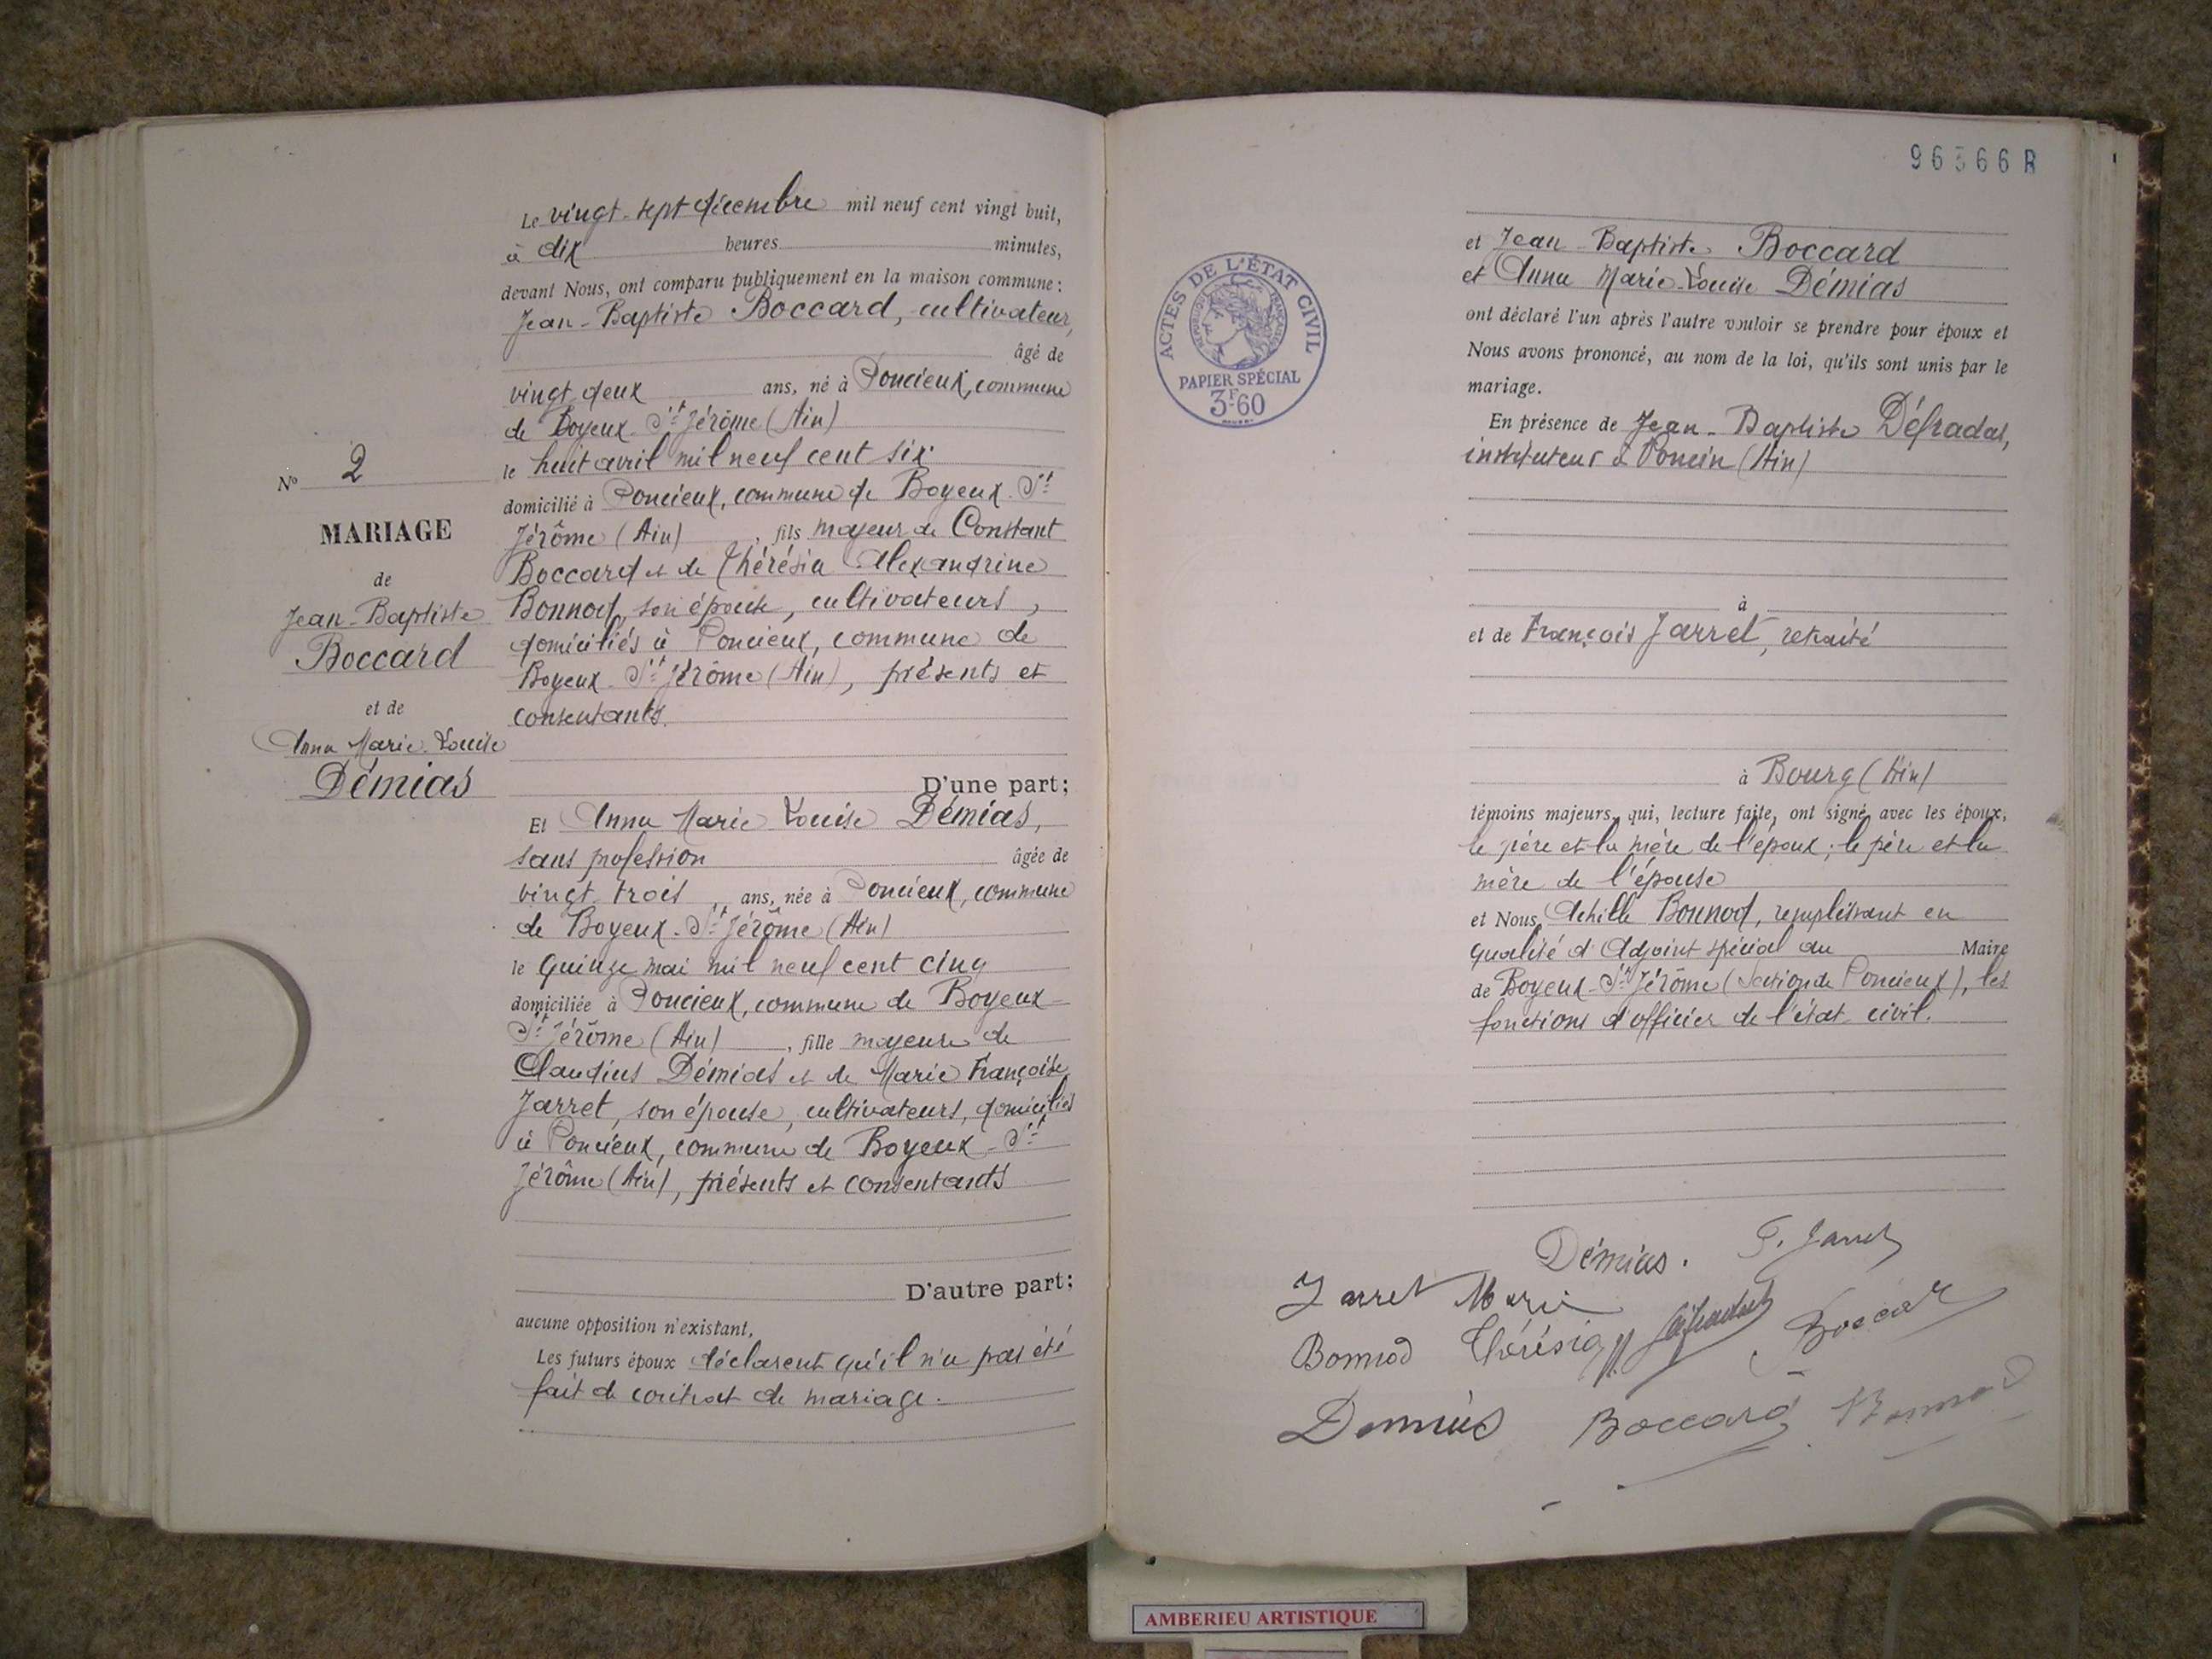 Le vingt-sept décembre mil neuf cent vingt huit,
à dix heures minutes,
devant Nous, ont comparu publiquement en la maison commune :
Jean-Baptiste Boccard, cultivateur,
âgé de
vingt deux ans, né à Poncieux, commune
de Boyeux-St Jérôme (Ain)
le huit avril mil neuf cent six
domicilié à Poncieux, commune de Boyeux-St
Jérôme (Ain), fils majeur de Constant
Boccard et de Thérésia Alexandrine
Bonnod, son épouse, cultivateurs,
domiciliés à Poncieux, commune de
Boyeux-St Jérôme (Ain), présents et
consentants.
D'une part;
Et Anna Marie Louise Démias,
sans profession âgée de
vingt trois ans, née à Poncieux, commune
de Boyeux-St Jérôme (Ain)
le quinze mai mil neuf cent cinq
domiciliée à Poncieux, commune de Boyeux-
St Jérôme (Ain), fille majeure de
Claudius Démias et de Marie Françoise
Jarret, son épouse, cultivateurs, domiciliés
à Poncieux, commune de Boyeux-St
Jérôme (Ain), présents et consentants
D'autre part;
aucune opposition n'existant,
Les futurs époux déclarent qu'il n'a pas été
fait de contrat de mariage.
No 2
MARIAGE
de
Jean-Baptiste
Boccard
et de
Anna Marie-Louise
Démias
96366 R
ACTES DE L'ÉTAT CIVIL
RÉPUBLIQUE FRANÇAISE
PAPIER SPÉCIAL
3F60
et Jean-Baptiste Boccard
et Anna Marie-Louise Démias
ont déclaré l'un après l'autre vouloir se prendre pour époux et
Nous avons prononcé, au nom de la loi, qu'ils sont unis par le
mariage.
En présence de Jean-Baptiste Défradas,
instituteur à Poncin (Ain)
à
et de François Jarret, retraité
à Bourg (Ain)
témoins majeurs, qui, lecture faite, ont signé avec les époux,
le père et la mère de l'époux; le père et la
mère de l'épouse
et Nous, Achille Bonnod, remplissant en
qualité d'Adjoint spécial au Maire
de Boyeux-St Jérôme (Section de Poncieux), les
fonctions d'officier de l'état-civil.
Démias. F. Jarret
Jarret Marie
Bonnod Thérésia Défradas Boccard
Demias Boccard Bonnod
AMBERIEU ARTISTIQUE